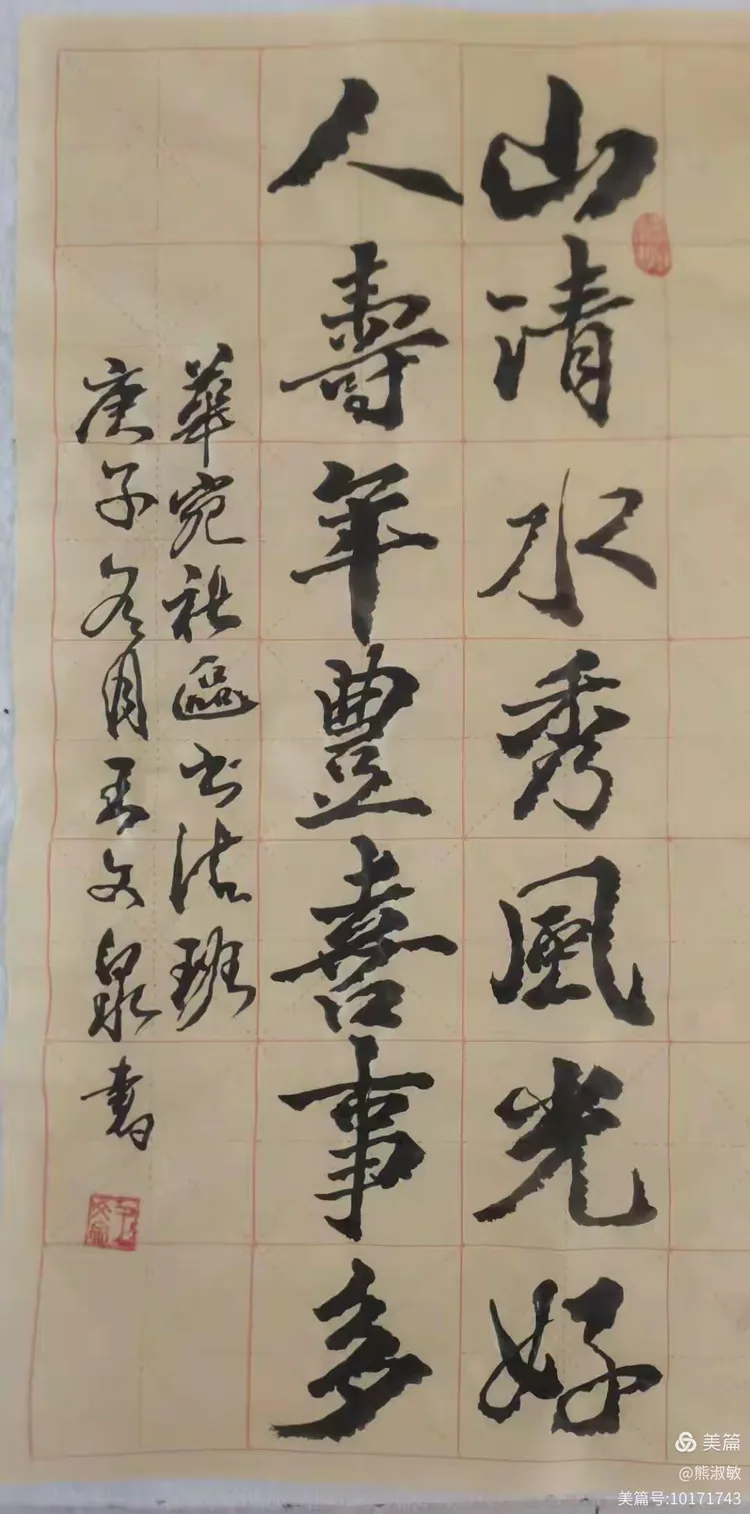 山清水秀風光好
人壽年豐喜事多
華宛社區书法班
庚子冬月王文泉書
美篇
@熊淑敏
美篇号:10171743